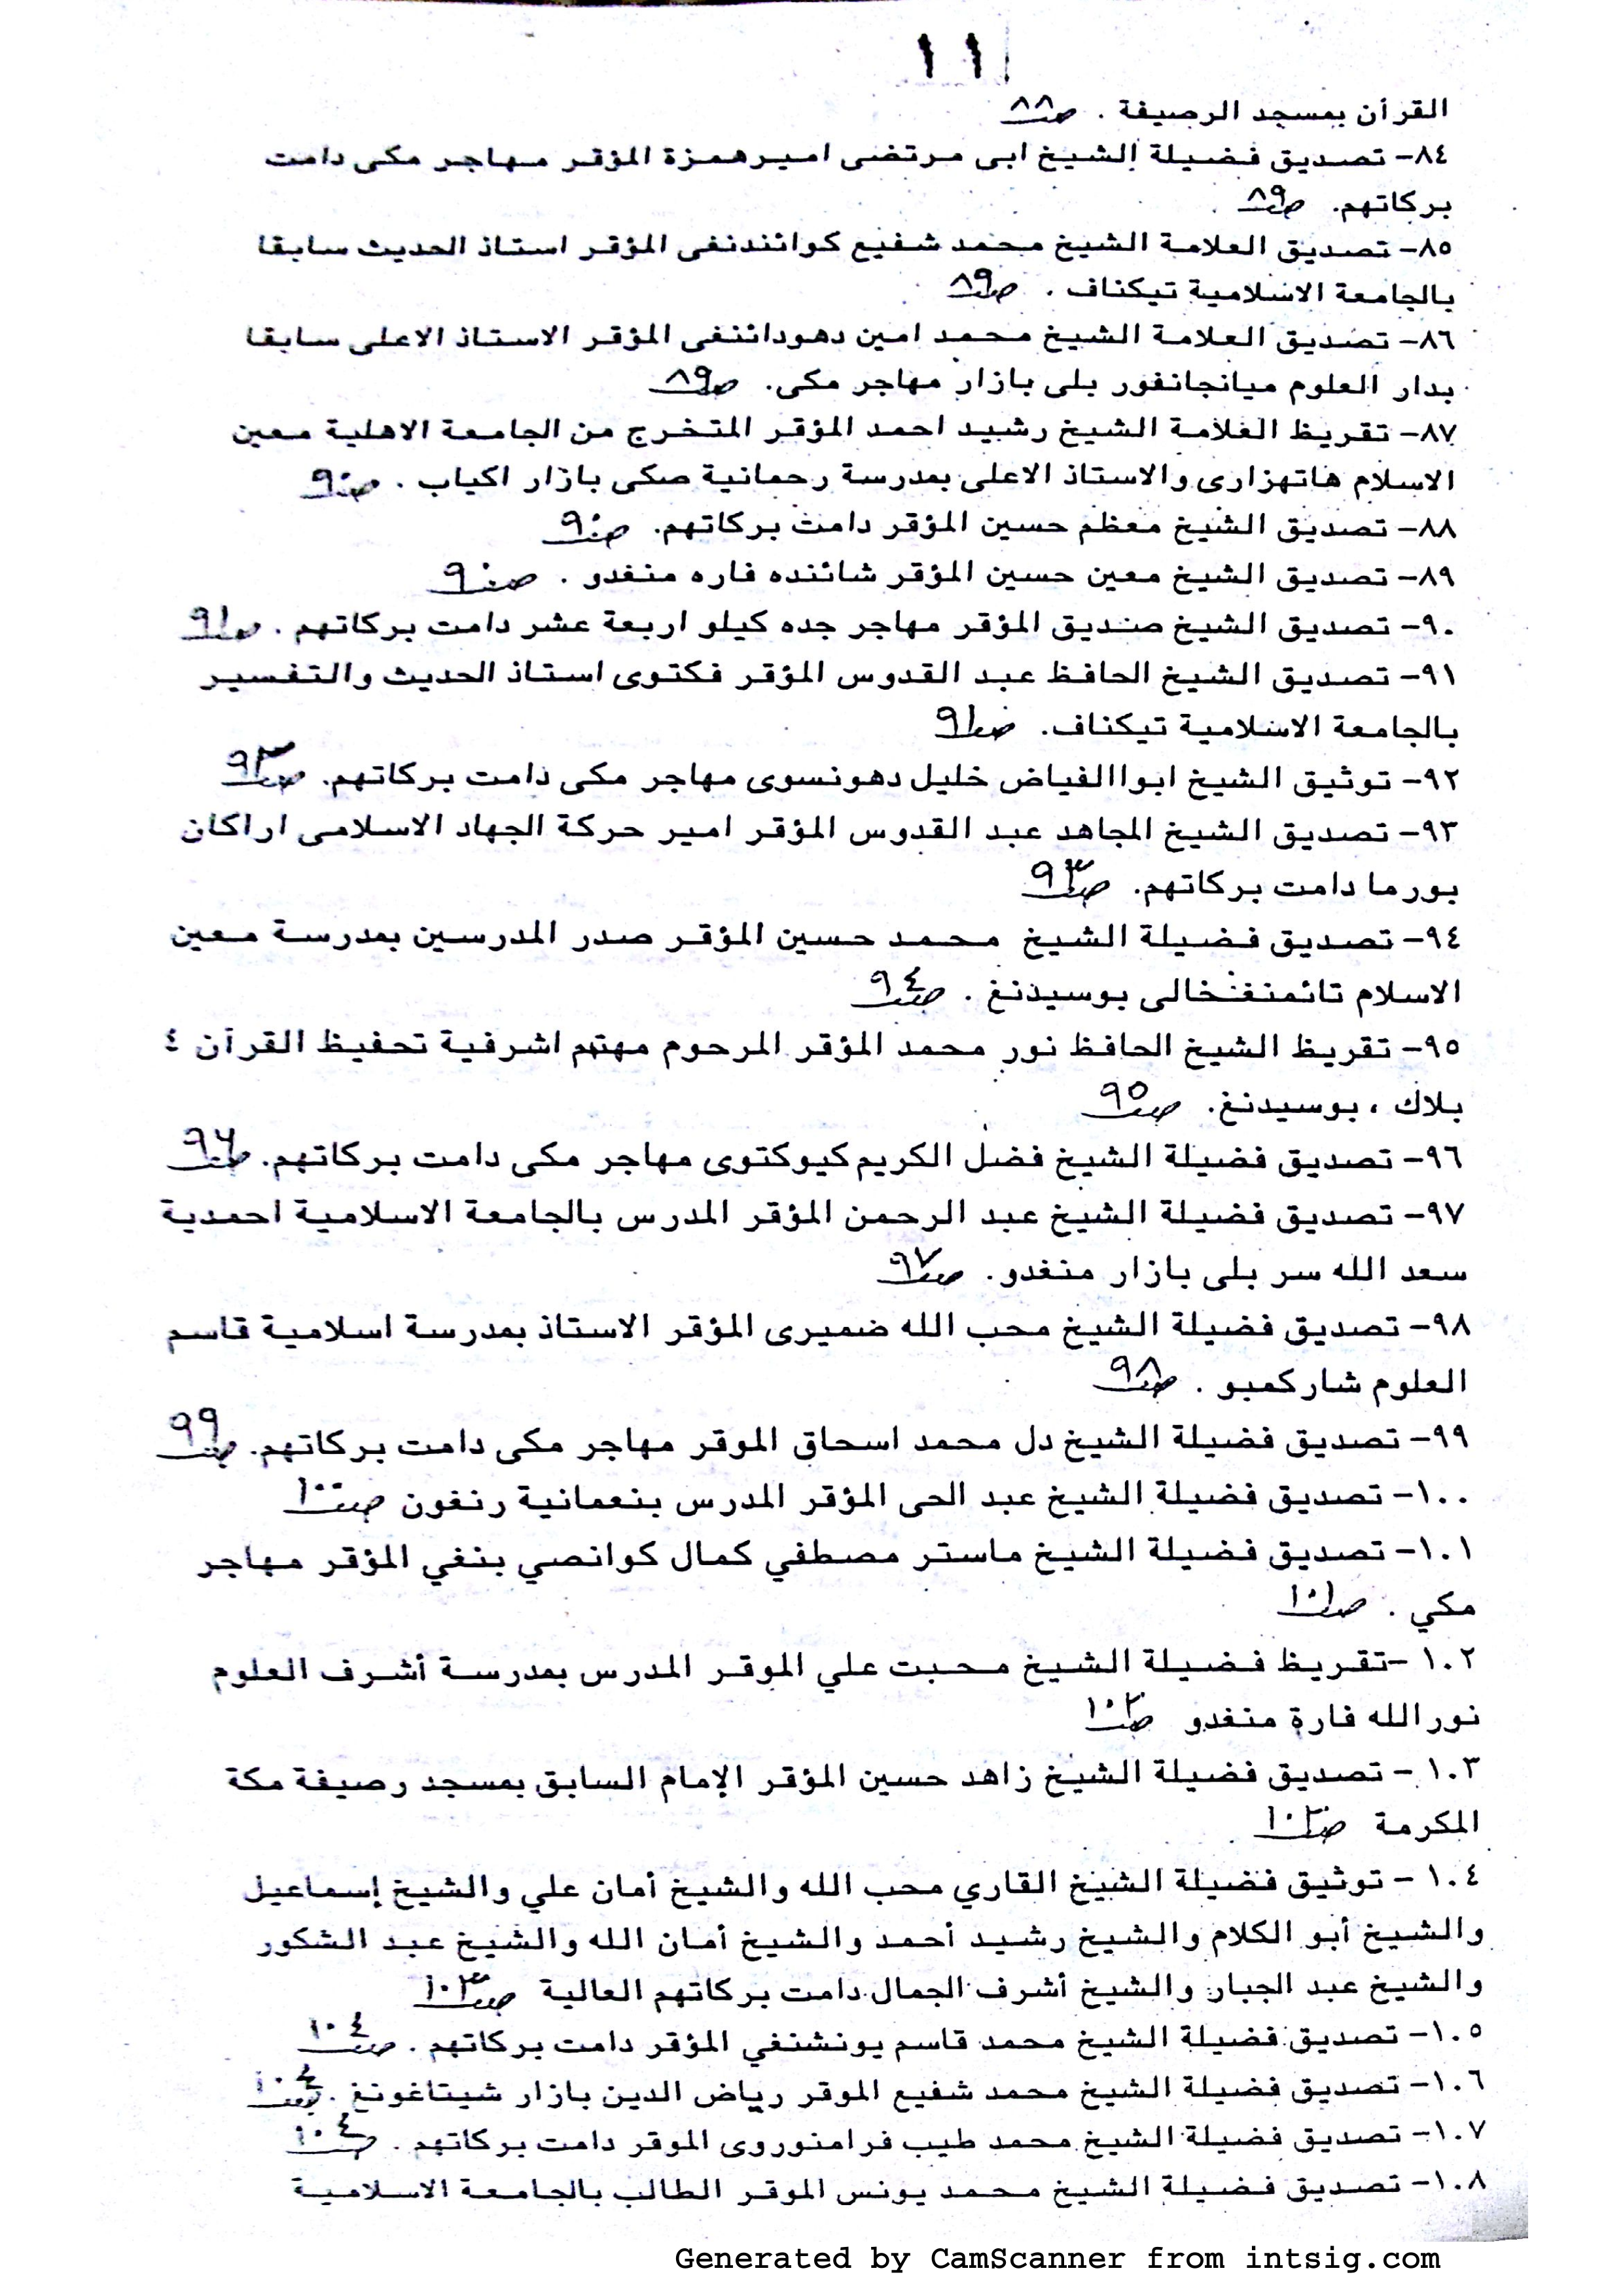 ١١
القرأن بمسجد الرصيفة . صـ٨٨
٨٤- تصديق فضيلة الشيخ ابى مرتضى اميرهمزة المؤقر مهاجر مكى دامت
بركاتهم. صـ٨٩
٨٥- تصديق العلامة الشيخ محمد شفيع كوائندنفى المؤقر استاذ الحديث سابقا
بالجامعة الاسلامية تيكناف . صـ٨٩
٨٦- تصديق العلامة الشيخ محمد امين دهودائنفى المؤقر الاستاذ الاعلى سابقا
بدار العلوم ميانجانفور بلى بازار مهاجر مكى. صـ٨٩
٨٧- تقريظ العلامة الشيخ رشيد احمد المؤقر المتخرج من الجامعة الاهلية معين
الاسلام هاتهزارى والاستاذ الاعلى بمدرسة رحمانية صكى بازار اكياب . صـ٩٠
٨٨- تصديق الشيخ معظم حسين المؤقر دامت بركاتهم. صـ٩٠
٨٩- تصديق الشيخ معين حسين المؤقر شائنده فاره منغدو . صـ٩٠
٩٠- تصديق الشيخ صنديق المؤقر مهاجر جده كيلو اربعة عشر دامت بركاتهم . صـ٩١
٩١- تصديق الشيخ الحافظ عبد القدوس المؤقر فكتوى استاذ الحديث والتفسير
بالجامعة الاسلامية تيكناف. صـ٩١
٩٢- توثيق الشيخ ابواالفياض خليل دهونسوى مهاجر مكى دامت بركاتهم. صـ٩٣
٩٣- تصديق الشيخ المجاهد عبد القدوس المؤقر امير حركة الجهاد الاسلامى اراكان
بورما دامت بركاتهم. صـ٩٣
٩٤- تصديق فضيلة الشيخ محمد حسين المؤقر صدر المدرسين بمدرسة معين
الاسلام تائمنغخالى بوسيدنغ . صـ٩٤
٩٥- تقريظ الشيخ الحافظ نور محمد المؤقر المرحوم مهتهم اشرفية تحفيظ القرآن ٤
بلاك ، بوسيدنغ. صـ٩٥
٩٦- تصديق فضيلة الشيخ فضل الكريم كيوكتوى مهاجر مكى دامت بركاتهم. صـ٩٦
٩٧- تصديق فضيلة الشيخ عبد الرحمن المؤقر المدرس بالجامعة الاسلامية احمدية
سعد الله سر بلى بازار منغدو. صـ٩٧
٩٨- تصديق فضيلة الشيخ محب الله ضميرى المؤقر الاستاذ بمدرسة اسلامية قاسم
العلوم شاركمبو . صـ٩٨
٩٩- تصديق فضيلة الشيخ دل محمد اسحاق الموقر مهاجر مكى دامت بركاتهم. صـ٩٩
١٠٠- تصديق فضيلة الشيخ عبد الحى المؤقر المدرس بنعمانية رنغون صـ١٠٠
١٠١- تصديق فضيلة الشيخ ماستر مصطفي كمال كوانصي بنغي المؤقر مهاجر
مكي . صـ١٠١
١٠٢ -تقريظ فضيلة الشيخ محبت علي الموقر المدرس بمدرسة أشرف العلوم
نورالله فارة منغدو صـ١٠٢
١٠٣ - تصديق فضيلة الشيخ زاهد حسين المؤقر الإمام السابق بمسجد رصيفة مكة
المكرمة صـ١٠٢
١٠٤ - توثيق فضيلة الشيخ القاري محب الله والشيخ أمان علي والشيخ إسماعيل
والشيخ أبو الكلام والشيخ رشيد أحمد والشيخ أمان الله والشيخ عبد الشكور
والشيخ عبد الجبار والشيخ أشرف الجمال دامت بركاتهم العالية صـ١٠٣
١٠٥- تصديق فضيلة الشيخ محمد قاسم يونشنفي المؤقر دامت بركاتهم . صـ١٠٤
١٠٦- تصديق فضيلة الشيخ محمد شفيع الموقر رياض الدين بازار شيتاغونغ . صـ١٠٤
١٠٧- تصديق فضيلة الشيخ محمد طيب فرامنوروى الموقر دامت بركاتهم . صـ١٠٤
١٠٨- تصديق فضيلة الشيخ محمد يونس الموقر الطالب بالجامعة الاسلامية
Generated by CamScanner from intsig.com